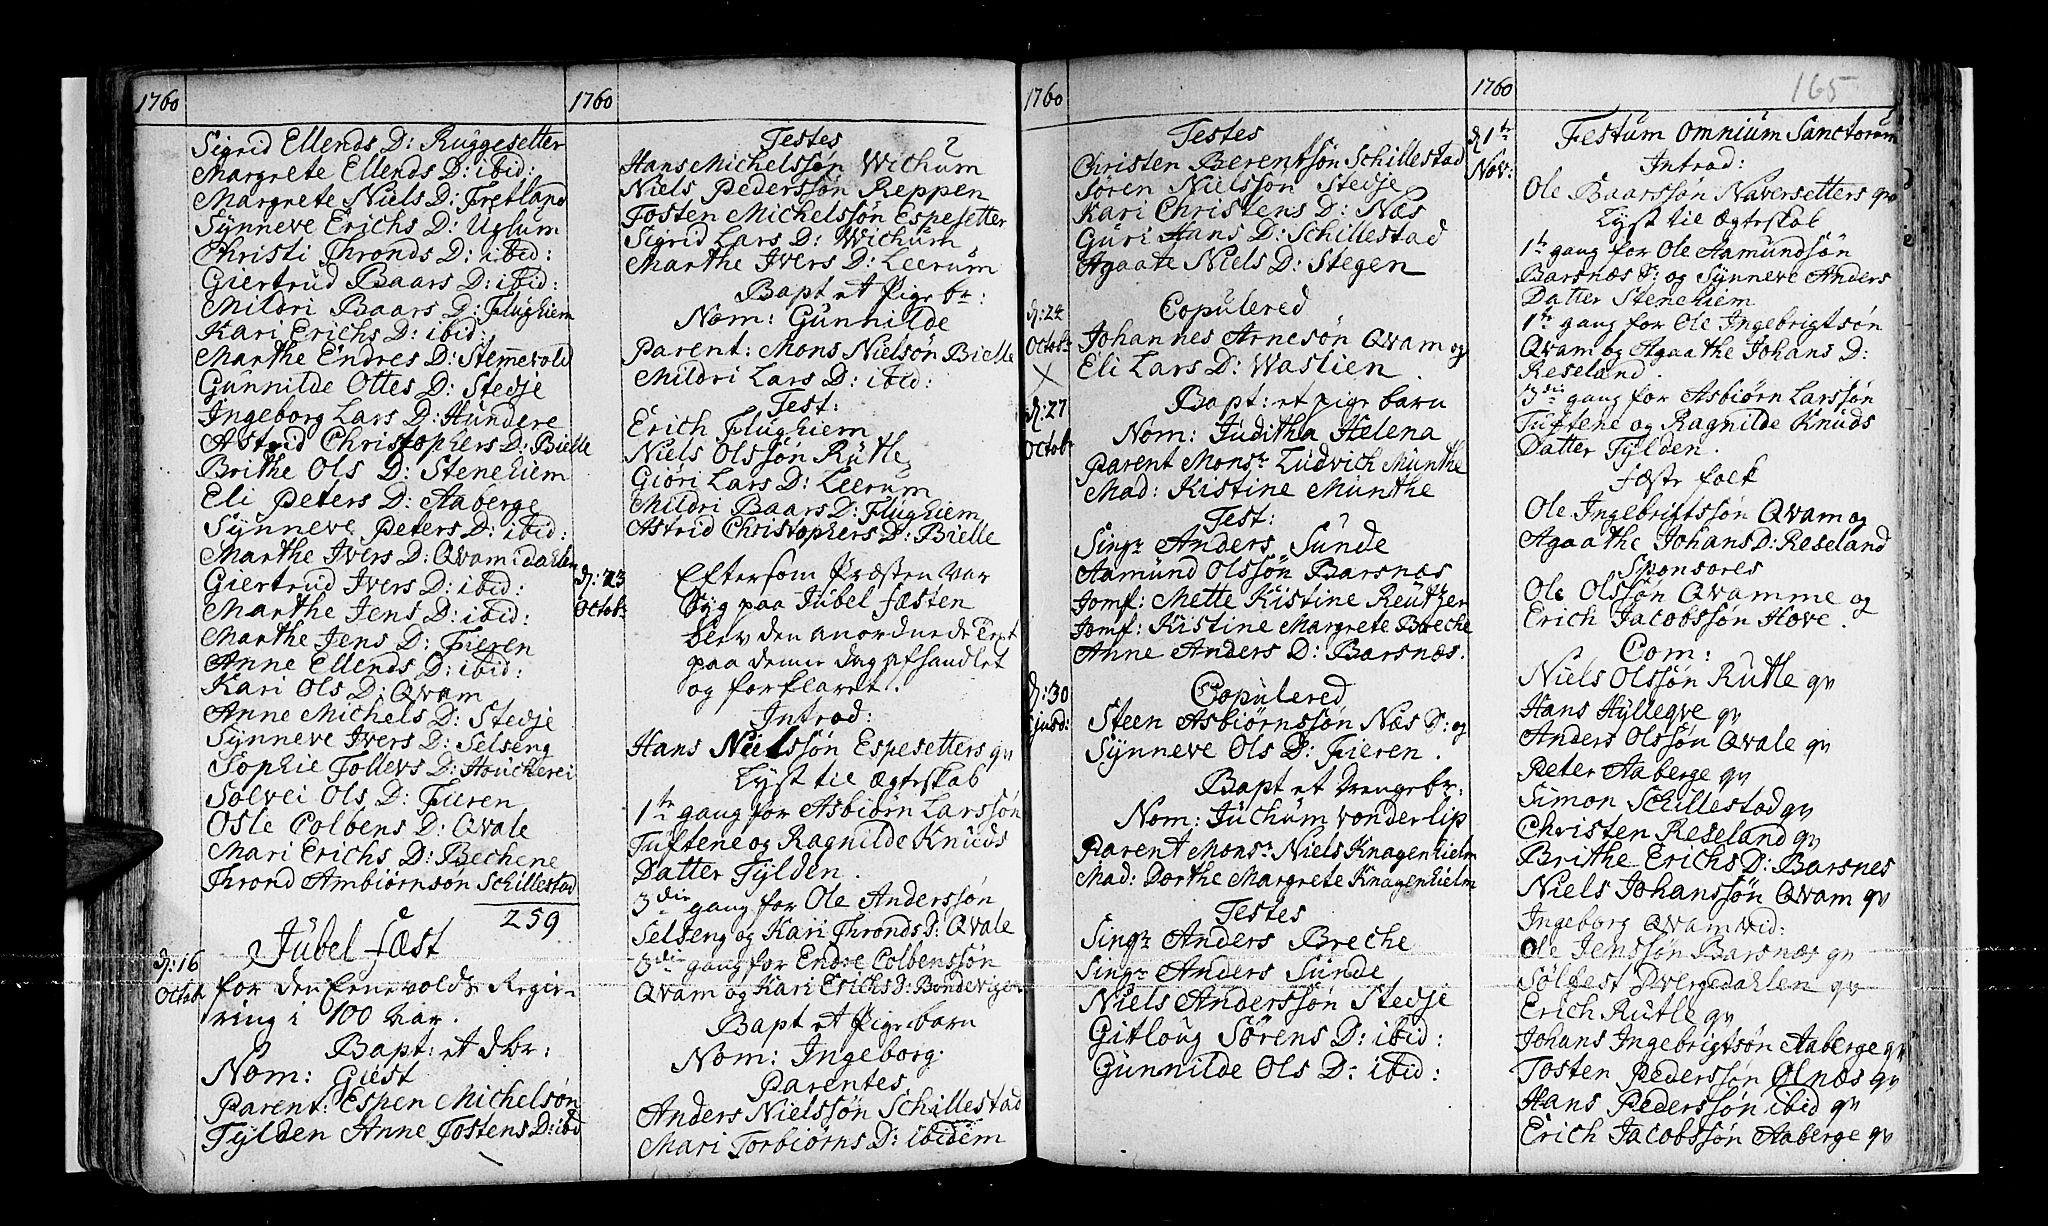 1760
Sigrid Ellends D: Ruggesetter
Margrete Ellends D: ibid:
Margrete Niels D: Fretland
Synneve Erichs D: Uglum
Christi Thronds D: ibid:
Giertrud Baars D: ibid:
Mildri Baars D: Flughiem
Kari Erichs D: ibid:
Marthe Endres D: Stemmevold
Gunnilde Ottes D: Stedje
Ingeborg Lars D: Hundere
Astrid Christophers D: Bielle
Brithe Ols D: Stenehiem
Eli Peters D: Aaberge
Synneve Peters D: ibid:
Marthe Ivers D: Qvam i dahlen
Giertrud Ivers D: ibid:
Marthe Jens D: ibid:
Marthe Jens D: Fieren
Anne Ellends D: ibid:
Kari Ols D: Qvam
Anne Michels D: Stedje
Synneve Ivers D: Selseng
Sophie Tollevs D: Houcherei
Solvei Ols D: Fieren
Osle Colbens D: Qvale
Mari Erichs D: Bechene
Thrond Ambiørnsøn Schillestad
259
d: 16
Octob:
Jubel fæst
for den Enevolds Regie-
ring i 100 aar.
Bapt: et dbr:
Nom: Giest
Parent: Espen Michelsøn
Tylden Anne Jostens D: ibd
1760
Testes
Hans Michelssøn Wichum
Niels Pederssøn Reppen
Josten Michelssøn Espesetter
Sigrid Lars D: Wichum
Marthe Ivers D: Leerum
Bapt et Pige br:
Nom: Gunnilde
Parent: Mons Nielsøn Bielle
Mildri Lars D: ibid:
Test:
Erich Flughiem
Niels Olssøn Rutle
Giøri Lars D: Leerum
Mildri Baars D: Flughiem
Astrid Christophers D: Bielle
d: 23
Octob:
Eftersom Præsten var
Syg paa Jubel fæsten
blev den anordnede Text
paa denne dag afhandlet
og forklaret.
Introd:
Hans Nielssøn Espesetters qv
Lyst til Ægteskab
1te gang for Asbiørn Larssøn
Tuftene og Ragnilde Knuds
Datter Tylden.
3die gang for Ole Anderssøn
Selseng og Kari Thronds D: Qvale
3die gang for Endre Colbenssøn
Qvam og Kari Erichs D: Bondevigen
Bapt et Pige barn
Nom: Ingeborg
Parentes
Anders Nielssøn Schillestad
Mari Torbiørns D: ibidem
1760
Testes
Christen Berentsøn Schillestad
Søren Nielssøn Stedje
Kari Christens D: Næs
Guri Hans D: Schillestad
Agaate Niels D: Stegen
d: 24
Octob:
Copulered
Johannes Arnesøn Qvam og
Eli Lars D: Wastien.
d: 27
Octob:
Bapt: et pige barn
Nom: Juditha Helena
Parent Monsr Ludvich Munthe
Mad: Kistine Munthe
Test:
Singr Anders Sunde
Aamund Olssøn Barsnæs
Jomf: Mette Kistine Reutzer
Jomf: Kistine Margrete Breche
Anne Anders D: Barsnæs.
d: 30
Copulered
Steen Asbiørnssøn Næs S: og
Synneve Ols D: Fieren.
Bapt et Drengebr:
Nom: Juchum vonderlip
Parent Monsr Niels Knagenhielm
Mad: Dorthe Margrete Knagenhielm
Testes
Singr Anders Breche
Singr Anders Sunde
Niels Anderssøn Stedje
Gitloug Sørens D: ibid:
Gunnilde Ols D: ibid:
1760
165
d 1te
Nov:
Festum Omnium Sanctorum
Introd:
Ole Baarssøn Naversetters qv
Lyst til Ægteskab
1te gang for Ole Aamundsøn
Barsnæs S: og Synneve Anders
Datter Stenehiem
1te gang for Ole Ingebrigtsøn
Qvam og Agaathe Johans D:
Reseland.
3die gang for Asbiørn Larssøn
Tuftene og Ragnilde Knuds
Datter Tylden.
fæste folk
Ole Ingebrigtssøn Qvam og
Agaathe Johans D: Reseland
Sponsores
Ole Olssøn Qvamme og
Erich Jacobssøn Hove.
Com:
Niels Olssøn Rutle qv
Hans Hyllegve qv
Anders Olssøn Qvale qv
Peter Aaberge qv
Simon Schillestad qv
Christen Reseland qv
Brithe Erichs D: Barsnes
Niels Johanssøn Qvam qv
Ingeborg Qvam vid:
Ole Jenssøn Barsnæs qv
Sølfest Dvergedahlen qv
Erich Rutle qv
Johans Ingebrigtsøn Aaberge qv
Josten Pederssøn Ølnæs qv
Hans Pederssøn ibid qv
Erich Jacobssøn Aaberge qv